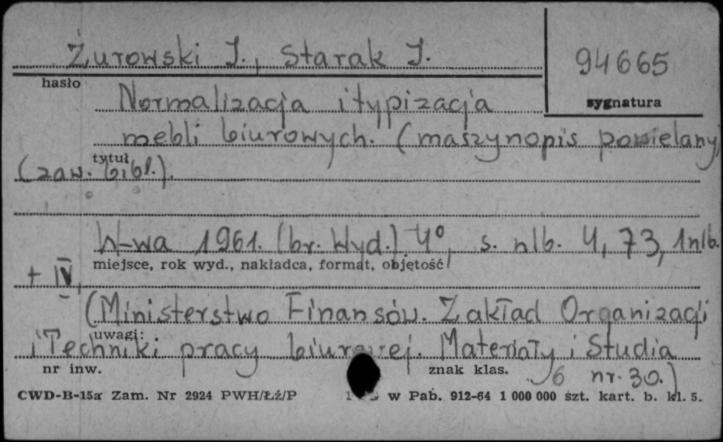 Żurowski J., Starak J.
94665
hasło
sygnatura
Normalizacja i typizacja
mebli biurowych. (maszynopis powielany)
tytuł
(zaw. bibl.).
W-wa 1961. (br. Wyd.). 4°, s. nlb. 4, 73, 1 nlb.
miejsce, rok wyd., nakładca, format, objętość
+ IV,
(Ministerstwo Finansów. Zakład Organizacji
uwagi:
i Techniki pracy biurowej. Materiały i Studia
nr inw.
znak klas.
nr. 30.)
CWD-B-15a Zam. Nr 2924 PWH/Łż/P
w Pab. 912-64 1 000 000 szt. kart. b. kl. 5.